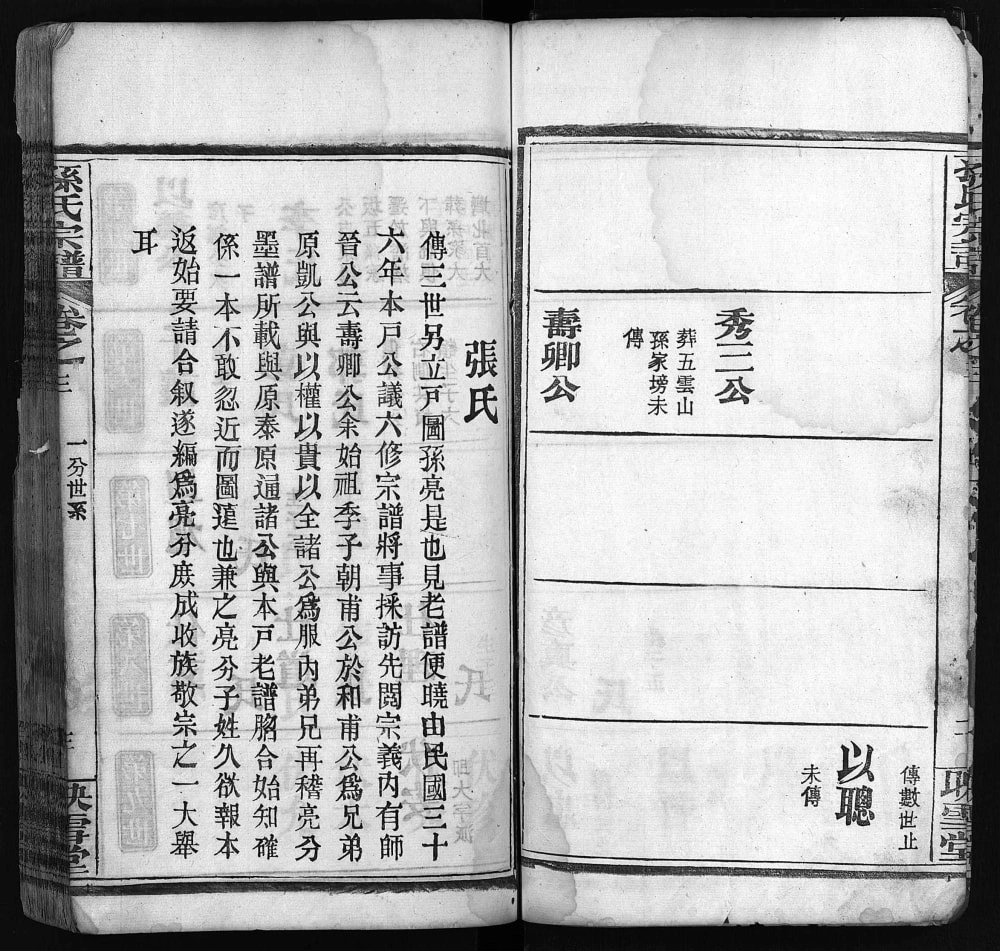 孫氏宗譜
卷之三
二
映雪堂
秀三公
葬五雲山
孫家塝未
傳
壽卿公
傳數世止
以聰
未傳
張氏
傳三世另立戸圖孫亮是也見老譜便曉由民國三十
六年本戸公議六修宗譜將事採訪先閱宗義內有師
晉公云壽卿公余始祖季子朝甫公於和甫公爲兄弟
原凱公與以權以貴以全諸公爲服內弟兄再稽亮分
墨譜所載與原泰原通諸公與本戸老譜脗合始知確
係一本不敢忽近而圖遠也兼之亮分子姓久欲報本
返始要請合叙遂編爲亮分庶成收族敬宗之一大舉
耳
孫氏宗譜
卷之三
一分世系
三
映雪堂